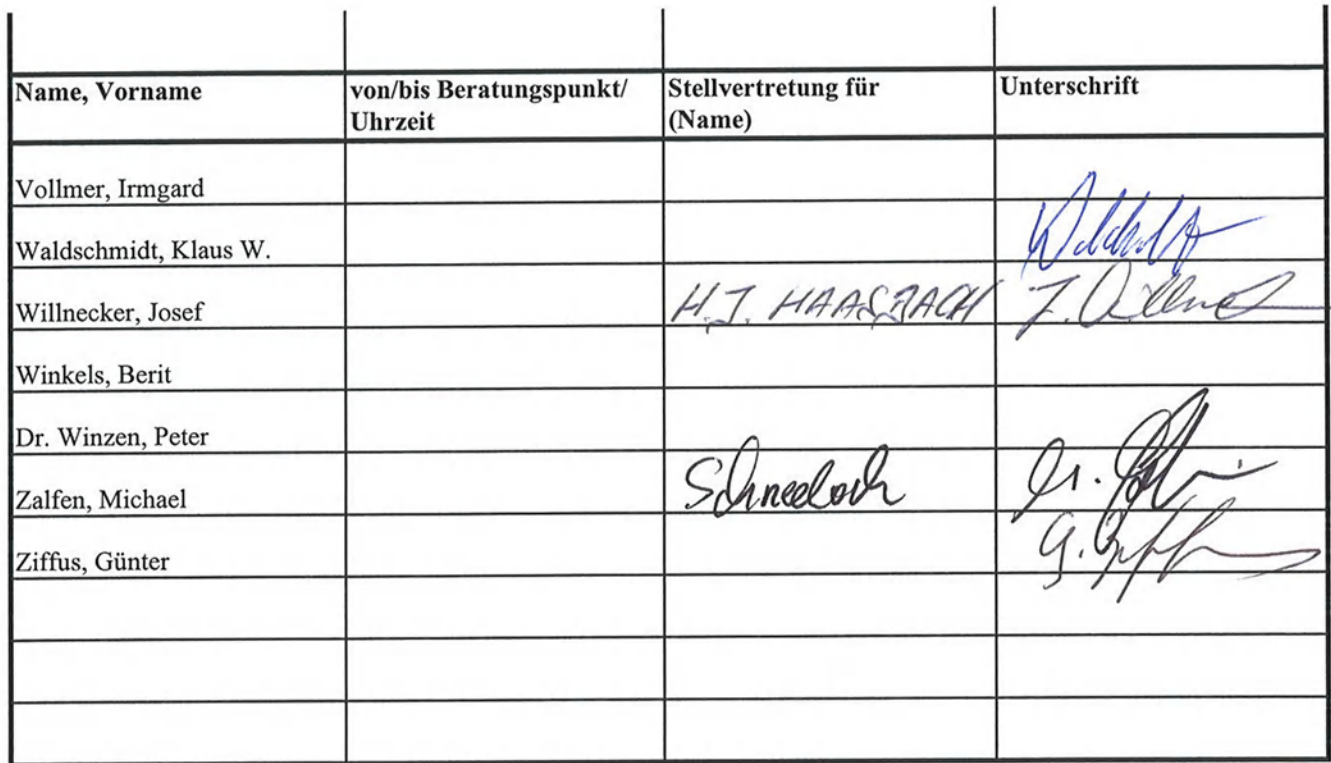 Name, Vorname von/bis Beratungspunkt/ Stellvertretung für Unterschrift
Uhrzeit (Name)
Vollmer, Irmgard
Waldschmidt, Klaus W.
Willnecker, Josef H.J. HAASBACH
Winkels, Berit
Dr. Winzen, Peter
Zalfen, Michael Schneeloch
Ziffus, Günter